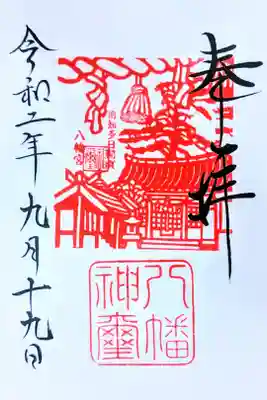 奉拝
八幡宮
八幡
神璽
令和二年九月十九日